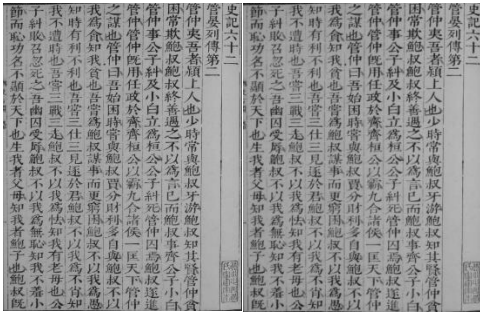 史記六十二
管晏列傳第二
管仲夷吾者潁上人也少時常與鮑叔牙游鮑叔知其賢管仲貧
困常欺鮑叔鮑叔終善遇之不以爲言已而鮑叔事齊公子小白
管仲事公子糾及小白立爲桓公公子糾死管仲囚焉鮑叔遂進
管仲管仲旣用任政於齊齊桓公以霸九合諸侯一匡天下管仲
之謀也管仲曰吾始困時常與鮑叔賈分財利多自與鮑叔不以
我爲貪知我貧也吾嘗爲鮑叔謀事而更窮困鮑叔不以我爲愚
知時有利不利也吾嘗三仕三見逐於君鮑叔不以我爲不肖知
我不遭時也吾嘗三戰三走鮑叔不以我爲怯知我有老母也公
子糾敗召忽死之吾幽囚受辱鮑叔不以我爲無恥知我不羞小
節而恥功名不顯於天下也生我者父母知我者鮑子也鮑叔旣
史記六十二
管晏列傳第二
管仲夷吾者潁上人也少時常與鮑叔牙游鮑叔知其賢管仲貧
困常欺鮑叔鮑叔終善遇之不以爲言已而鮑叔事齊公子小白
管仲事公子糾及小白立爲桓公公子糾死管仲囚焉鮑叔遂進
管仲管仲旣用任政於齊齊桓公以霸九合諸侯一匡天下管仲
之謀也管仲曰吾始困時常與鮑叔賈分財利多自與鮑叔不以
我爲貪知我貧也吾嘗爲鮑叔謀事而更窮困鮑叔不以我爲愚
知時有利不利也吾嘗三仕三見逐於君鮑叔不以我爲不肖知
我不遭時也吾嘗三戰三走鮑叔不以我爲怯知我有老母也公
子糾敗召忽死之吾幽囚受辱鮑叔不以我爲無恥知我不羞小
節而恥功名不顯於天下也生我者父母知我者鮑子也鮑叔旣